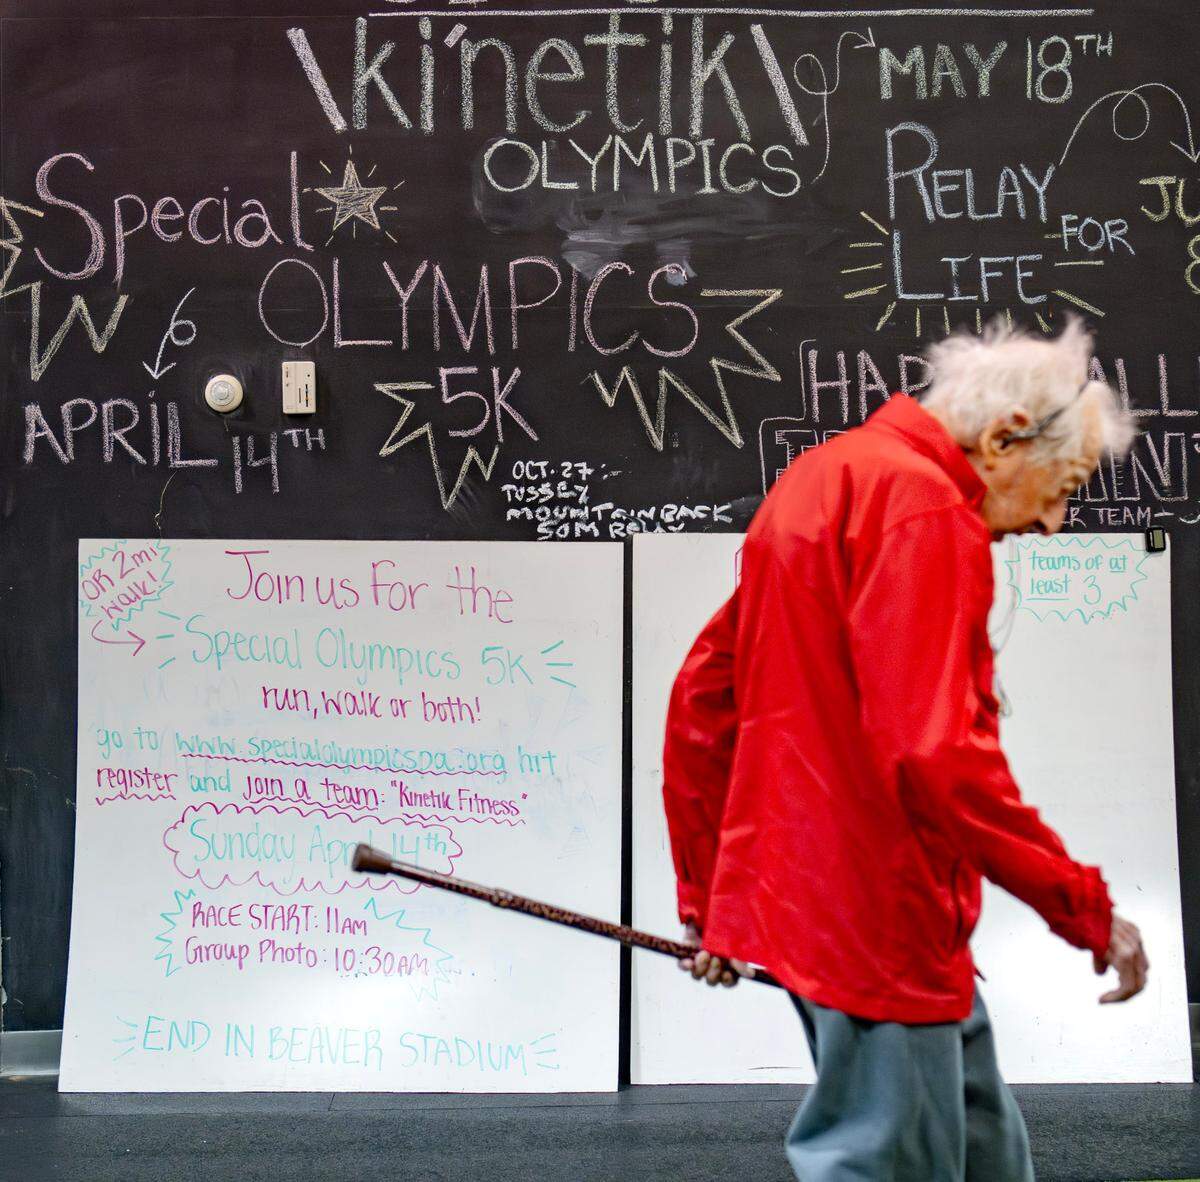 \ki'netik\
OLYMPICS
MAY 18TH
RELAY
FOR
LIFE
Special
OLYMPICS
5K
APRIL 14TH
OCT. 27 :-
TUSSEY
MOUNTAINBACK
50M RELAY
TEAM-
OR 2mi
walk!
Join us for the
Special Olympics 5K
run, walk or both!
go to www.specialolympicspa.org hit
register and join a team: "Kinetik Fitness"
Sunday April 14th
RACE START: 11AM
Group Photo: 10:30AM
END IN BEAVER STADIUM
teams of at
least 3